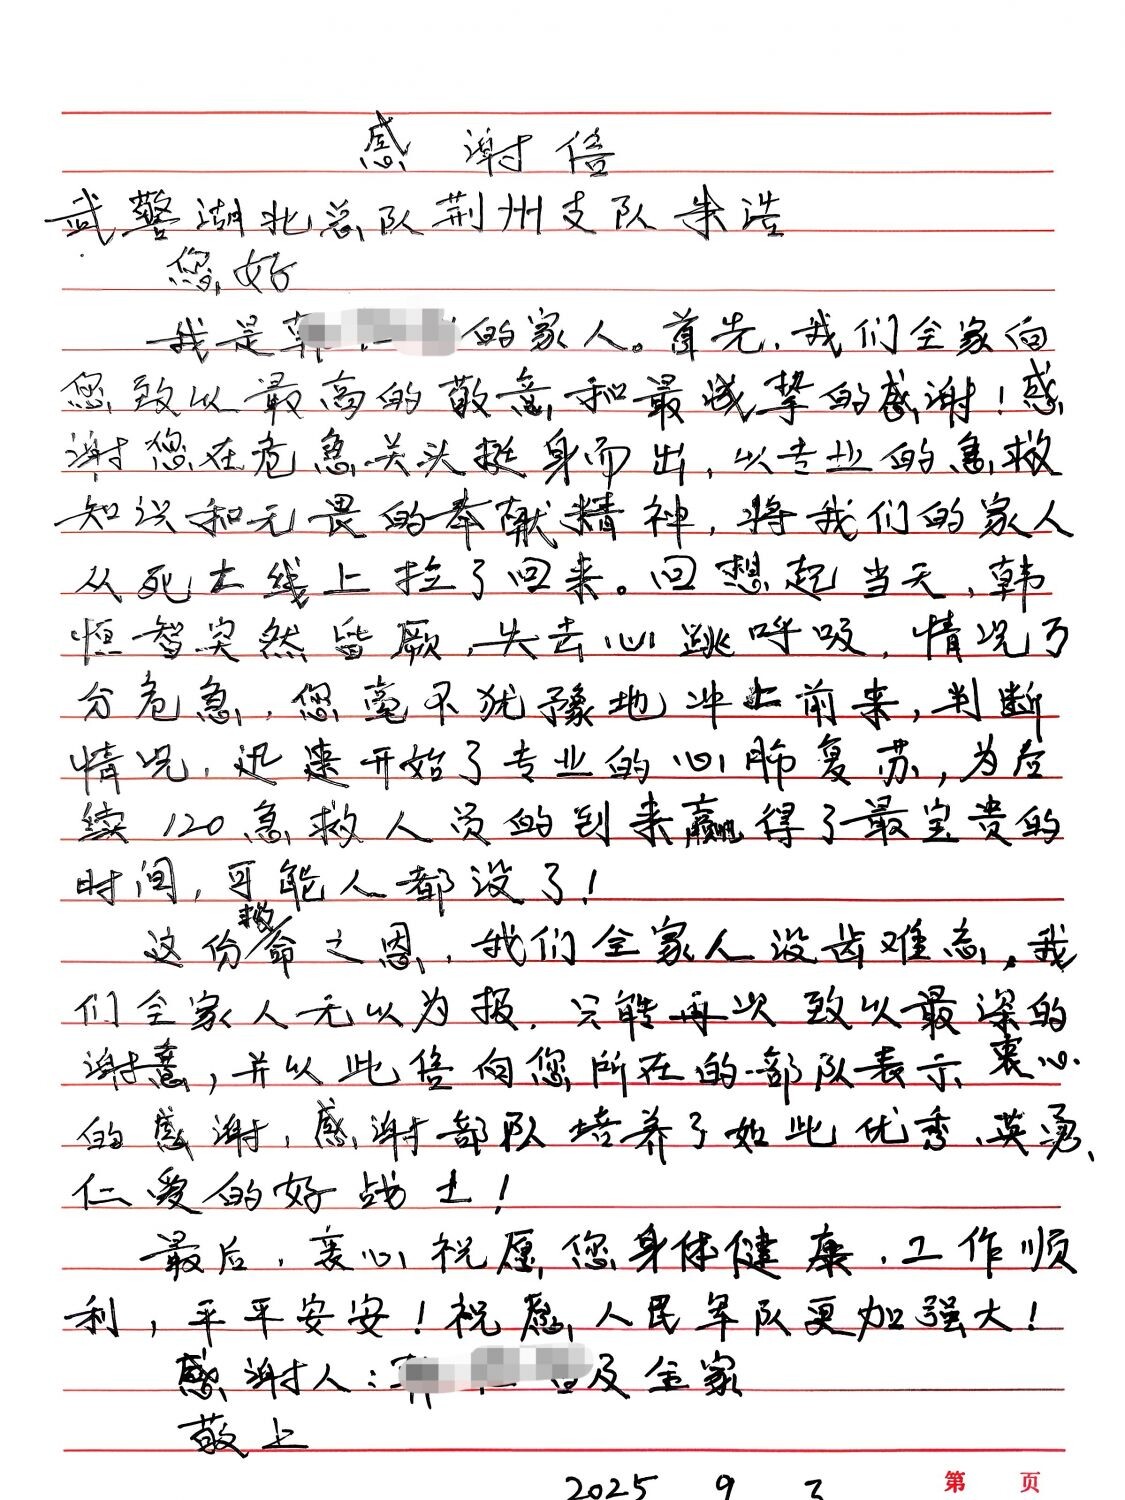 感谢信
武警湖北总队荆州支队朱浩
您好
我是韩 的家人。首先,我们全家向
您致以最高的敬意和最诚挚的感谢!感
谢您在危急关头挺身而出,以专业的急救
知识和无畏的奉献精神,将我们的家人
从死亡线上拉了回来。回想起当天,韩
恒智突然昏厥,失去心跳呼吸,情况万
分危急,您毫不犹豫地冲上前来,判断
情况,迅速开始了专业的心肺复苏,为后
续120急救人员的到来赢得了最宝贵的
时间,可能人都没了!
这份救命之恩,我们全家人没齿难忘,我
们全家人无以为报,只能再次致以最深的
谢意,并以此信向您所在的部队表示衷心
的感谢,感谢部队培养了如此优秀、英勇、
仁爱的好战士!
最后,衷心祝愿您身体健康,工作顺
利,平平安安!祝愿人民军队更加强大!
感谢人:韩 及全家
敬上
2025 9 3
第 页